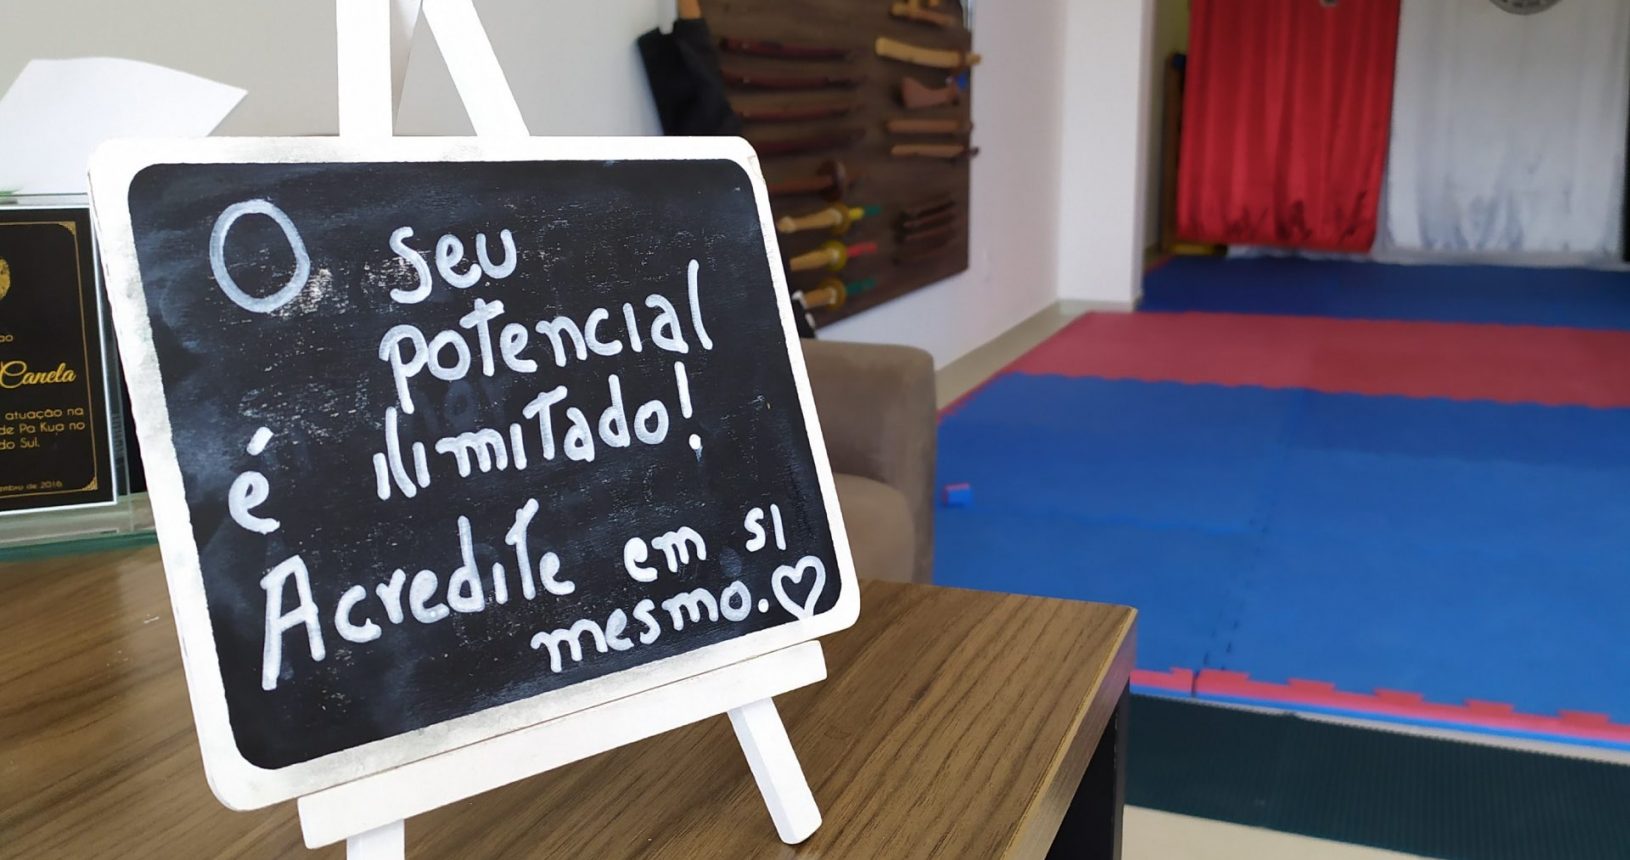 O seu
potencial
é ilimitado!
Acredite em si
mesmo.
Canela
atuação na
de Pa Kua no
do Sul.
de 2016